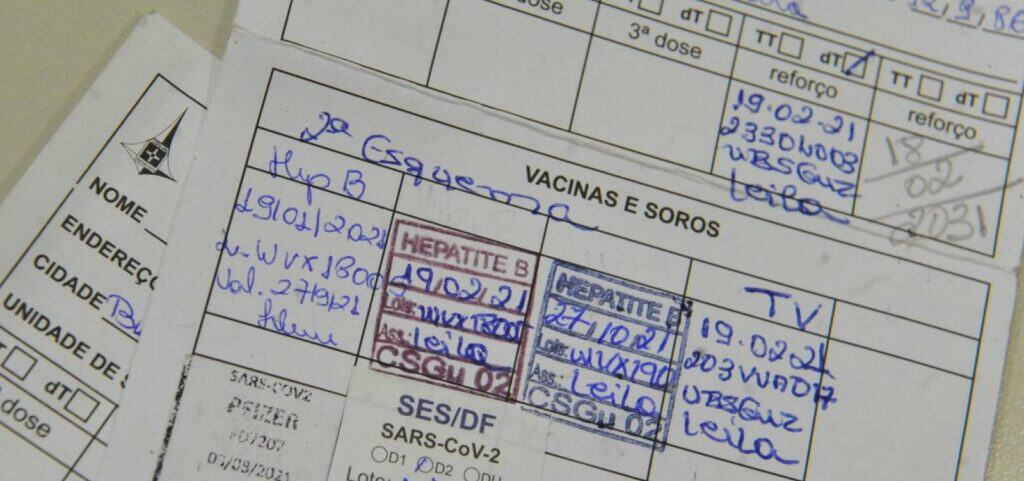 12,9,86
dose
3ª dose
dT
TT
dT
reforço
TT
dT
reforço
19.02-21
UBSGU2
Leila
18
02
2031
2ª Esquema
VACINAS E SOROS
Hep B
19/01/2021
Val. 27/9/21
HEPATITE B
19/02/21
Lote:
Ass.: Leila
CSGu 02
HEPATITE B
27/10/21
Lote: WVX190
Ass.: Leila
CSGu 02
TV
19.0221
UBSGU2
Leila
NOME
ENDEREÇO
CIDADE
UNIDADE DE
dT
dose
SARS-COV2
PFIZER
SES/DF
SARS-CoV-2
D1
D2
Lote: